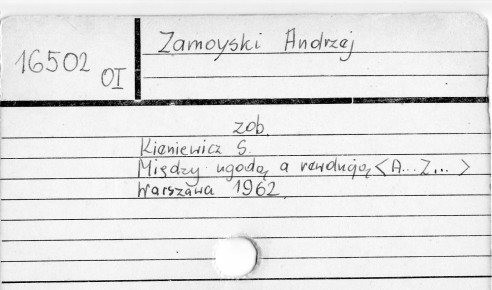 16502 OI
Zamoyski Andrzej
zob.
Kieniewicz S.
Między ugodą a rewolucją <A... Z... >
Warszawa 1962.